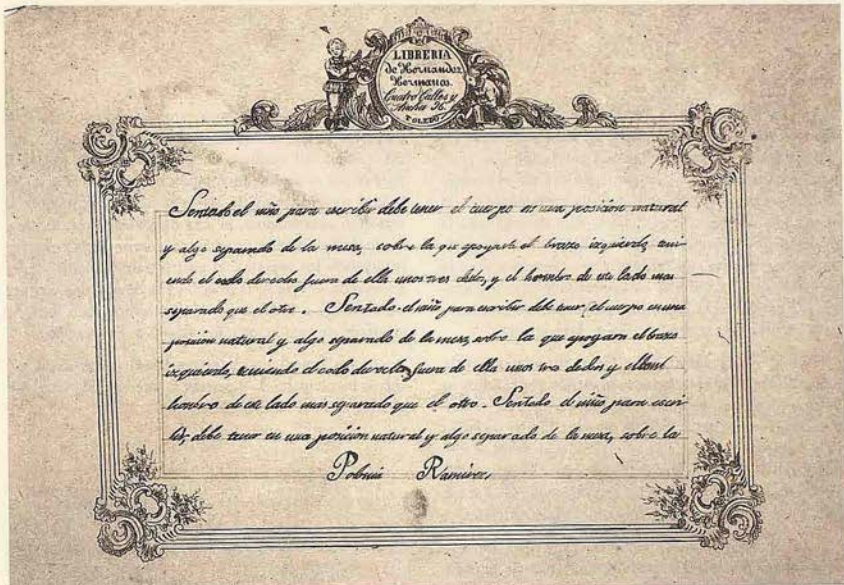 LIBRERIA
de Hernandez
Hermanas.
Cuatro Calles y
Ancha 36.
TOLEDO
Sentado el niño para escribir debe tener el cuerpo en una posición natural
y algo separado de la mesa, sobre la que apoyará el brazo izquierdo, teni-
endo el codo derecho fuera de ella unos tres dedos, y el hombro de este lado mas
separado que el otro. Sentado el niño para escribir debe tener el cuerpo en una
posición natural y algo separado de la mesa, sobre la que apoyara el brazo
izquierdo, teniendo el codo derecho fuera de ella unos tres dedos y el
hombro de este lado mas separado que el otro. Sentado el niño para escri-
bir, debe tener en una posición natural y algo separado de la mesa, sobre la
Ramirez